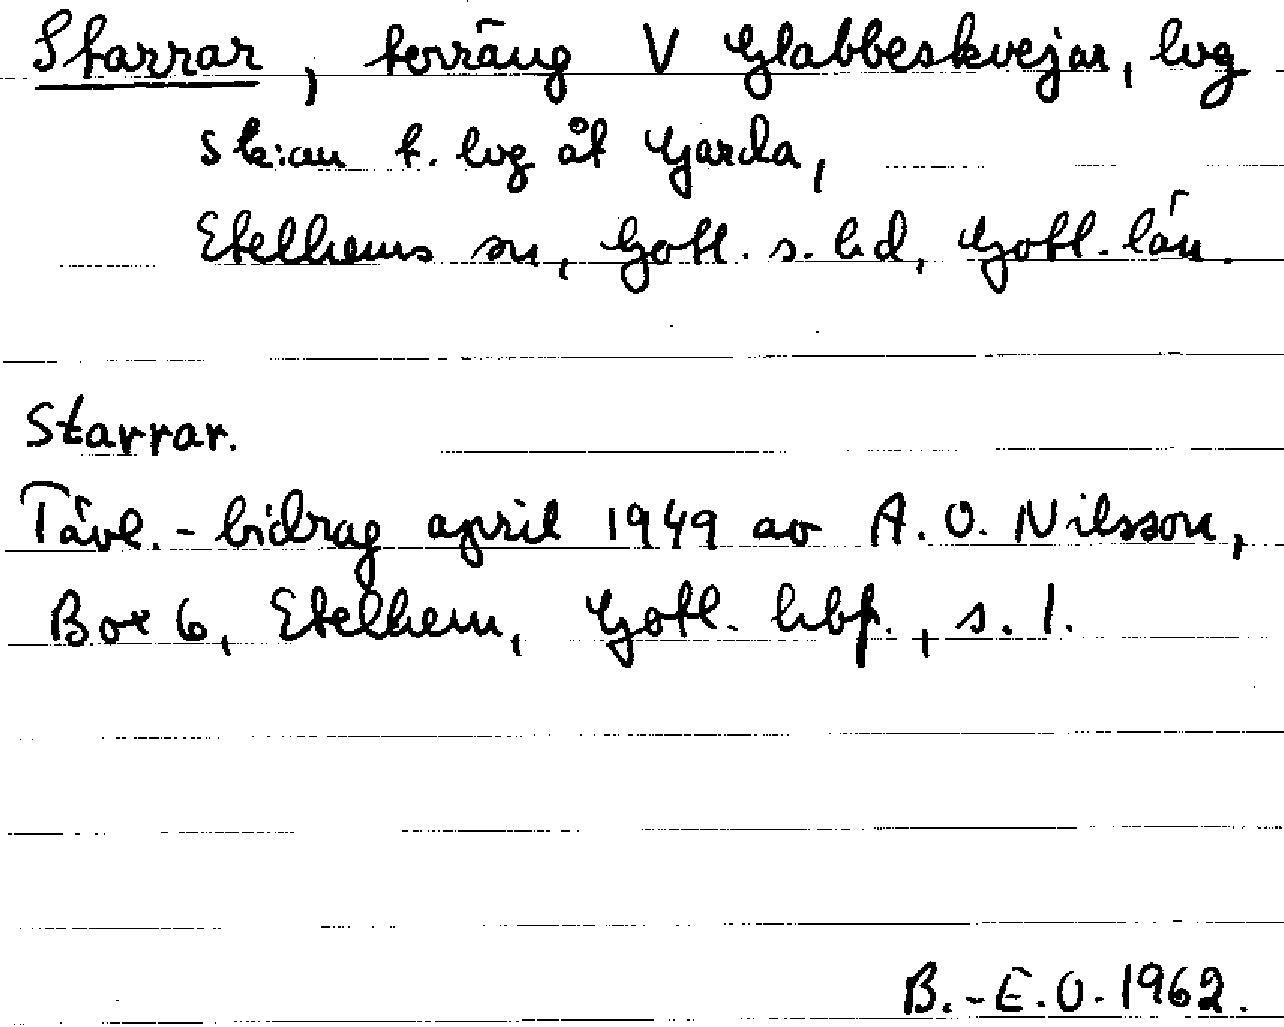 Starrar, terräng V Glabbeskvejar, lvg
sk:an t. lvg åt Garda,
Etelhems sn, Gotl. s. hd, Gotl. län.
Starrar.
Tävl.-bidrag april 1949 av A. O. Nilsson,
Box 6, Etelhem, Gotl. hbf., s. 1.
B.-E.O. 1962.